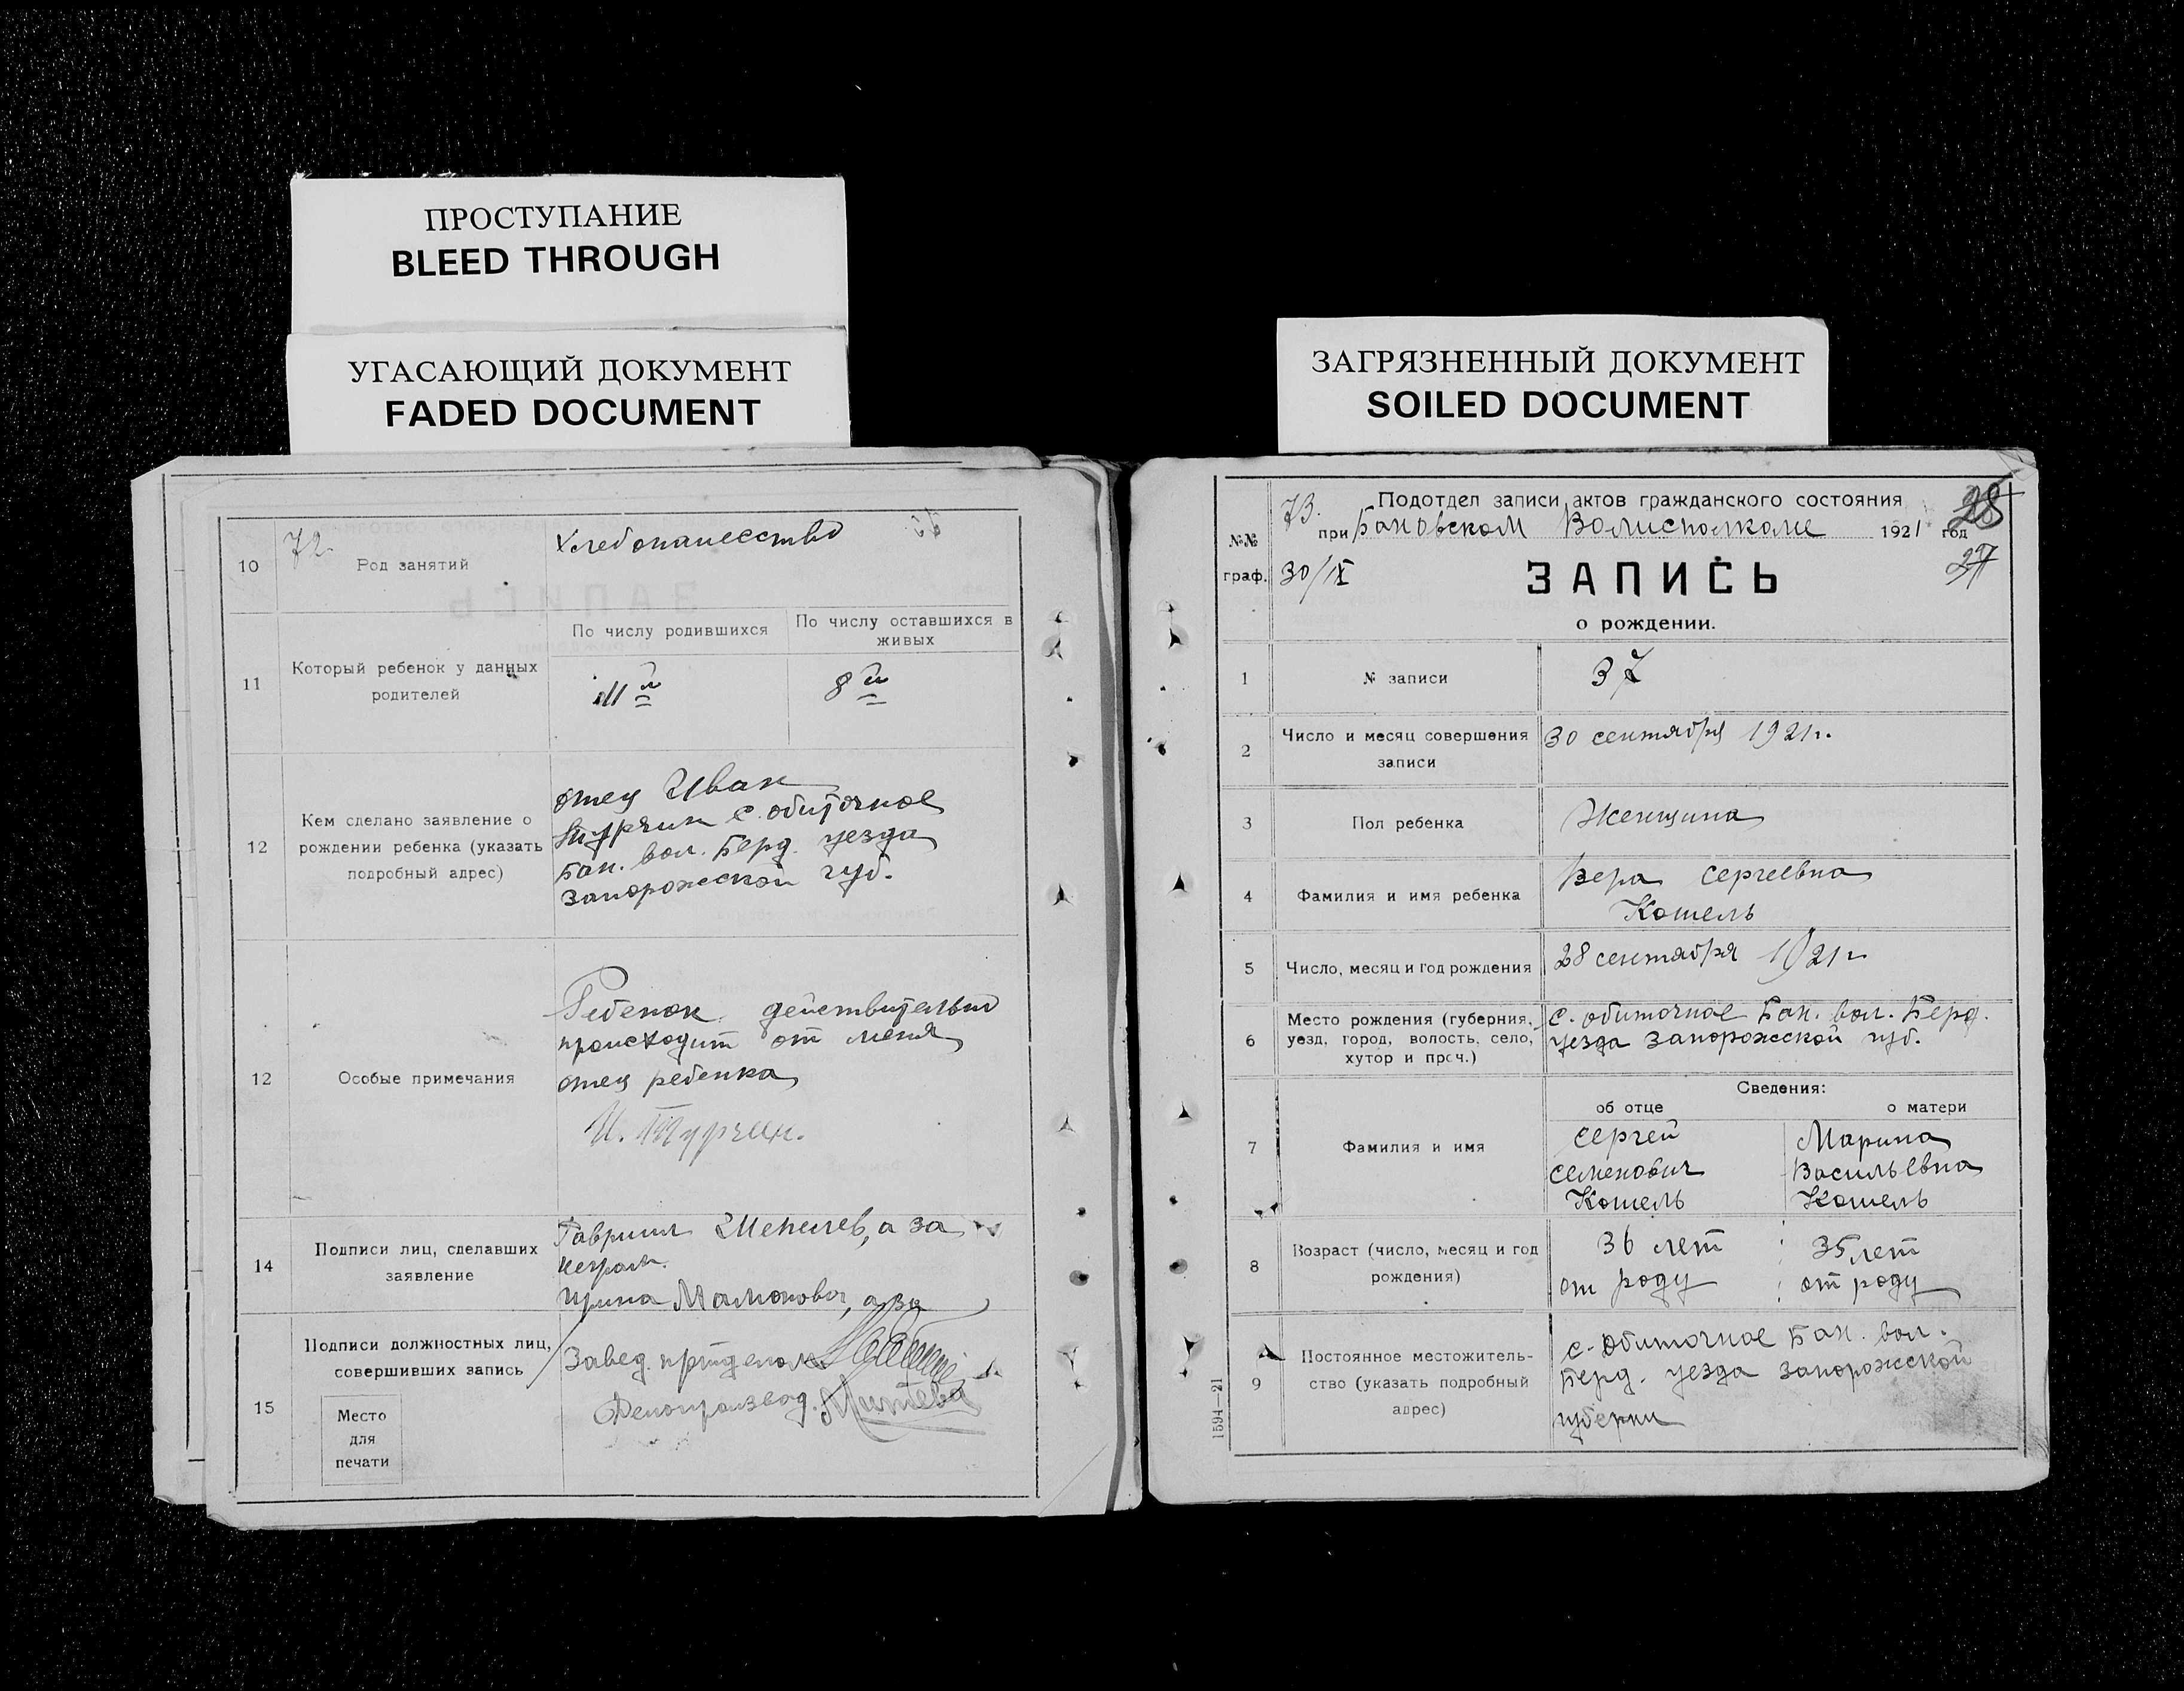 ПРОСТУПАНИЕ
BLEED THROUGH
УГАСАЮЩИЙ ДОКУМЕНТ
FADED DOCUMENT
10
72
Род занятий
Хлебопашество
11
Который ребенок у данных
родителей
По числу родившихся
По числу оставшихся в
живых
11 й
8 й
12
Кем сделано заявление о
рождении ребенка (указать
подробный адрес)
отец Иван
Турчин с. обиточное
Бан. вол. Берд. уезда
Запорожской губ.
12
Особые примечания
Ребенок действительно
происходит от меня
отец ребенка
И. Турчин.
14
Подписи лиц, сделавших
заявление
Гавриил а за
неграм.
Ирина Мамонова, а за
Подписи должностных лиц,
совершивших запись
15
Место
для
печати
Завед.
Делопроизвод.
ЗАГРЯЗНЕННЫЙ ДОКУМЕНТ
SOILED DOCUMENT
№№
граф.
73.
Подотдел записи актов гражданского состояния
28
при Бановском Волисполкоме 1921 год
30/IX
ЗАПИСЬ
27
о рождении.
1
№ записи
37
2
Число и месяц совершения
записи
30 сентября 1921 г.
3
Пол ребенка
Женщина
4
Фамилия и имя ребенка
Вера Сергеевна
Кошель
5
Число, месяц и год рождения
28 сентября 1921 г
6
Место рождения (губерния,
уезд, город, волость, село,
хутор и проч.)
с. обиточное Бан. вол. Берд.
уезда Запорожской губ.
Сведения:
об отце
о матери
7
Фамилия и имя
Сергей
Семенович
Кошель
Марина
Васильевна
Кошель
8
Возраст (число, месяц и год
рождения)
36 лет
от роду
35 лет
от роду
9
Постоянное местожитель-
ство (указать подробный
адрес)
с. Обиточное Бан. вол.
Берд. уезда Запорожской
губерни
1594—21